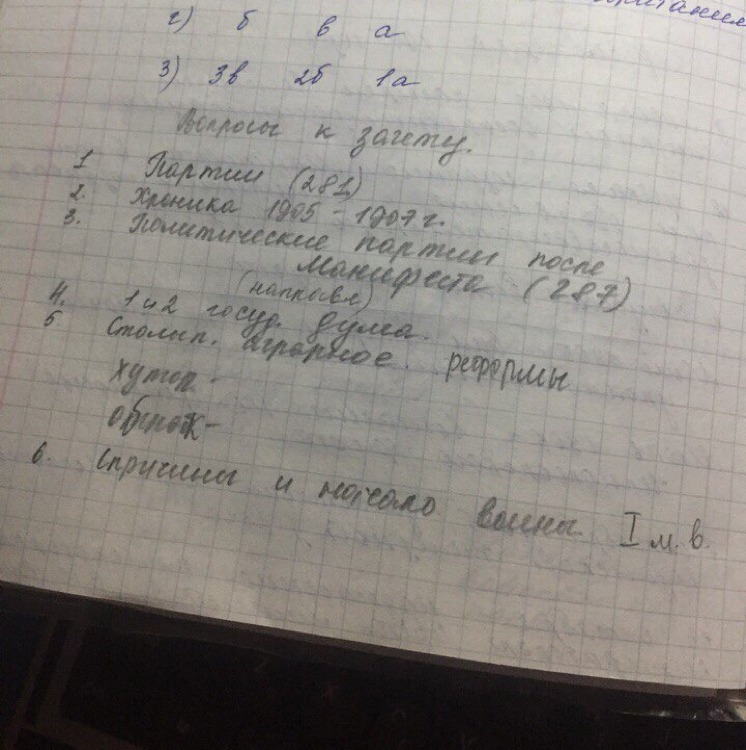 г) б в а
3) 3в 2б 1а
Вопросы к зачету.
1 Партии (281)
2. Хроника 1905 - 1907 г.
3. Политические партии после
манифеста (287)
(направл)
4. 1 и 2 госуд. дума.
5 Столып. аграрное. реформы
хутор -
отруб -
6. Причины и начало войны I м. в.